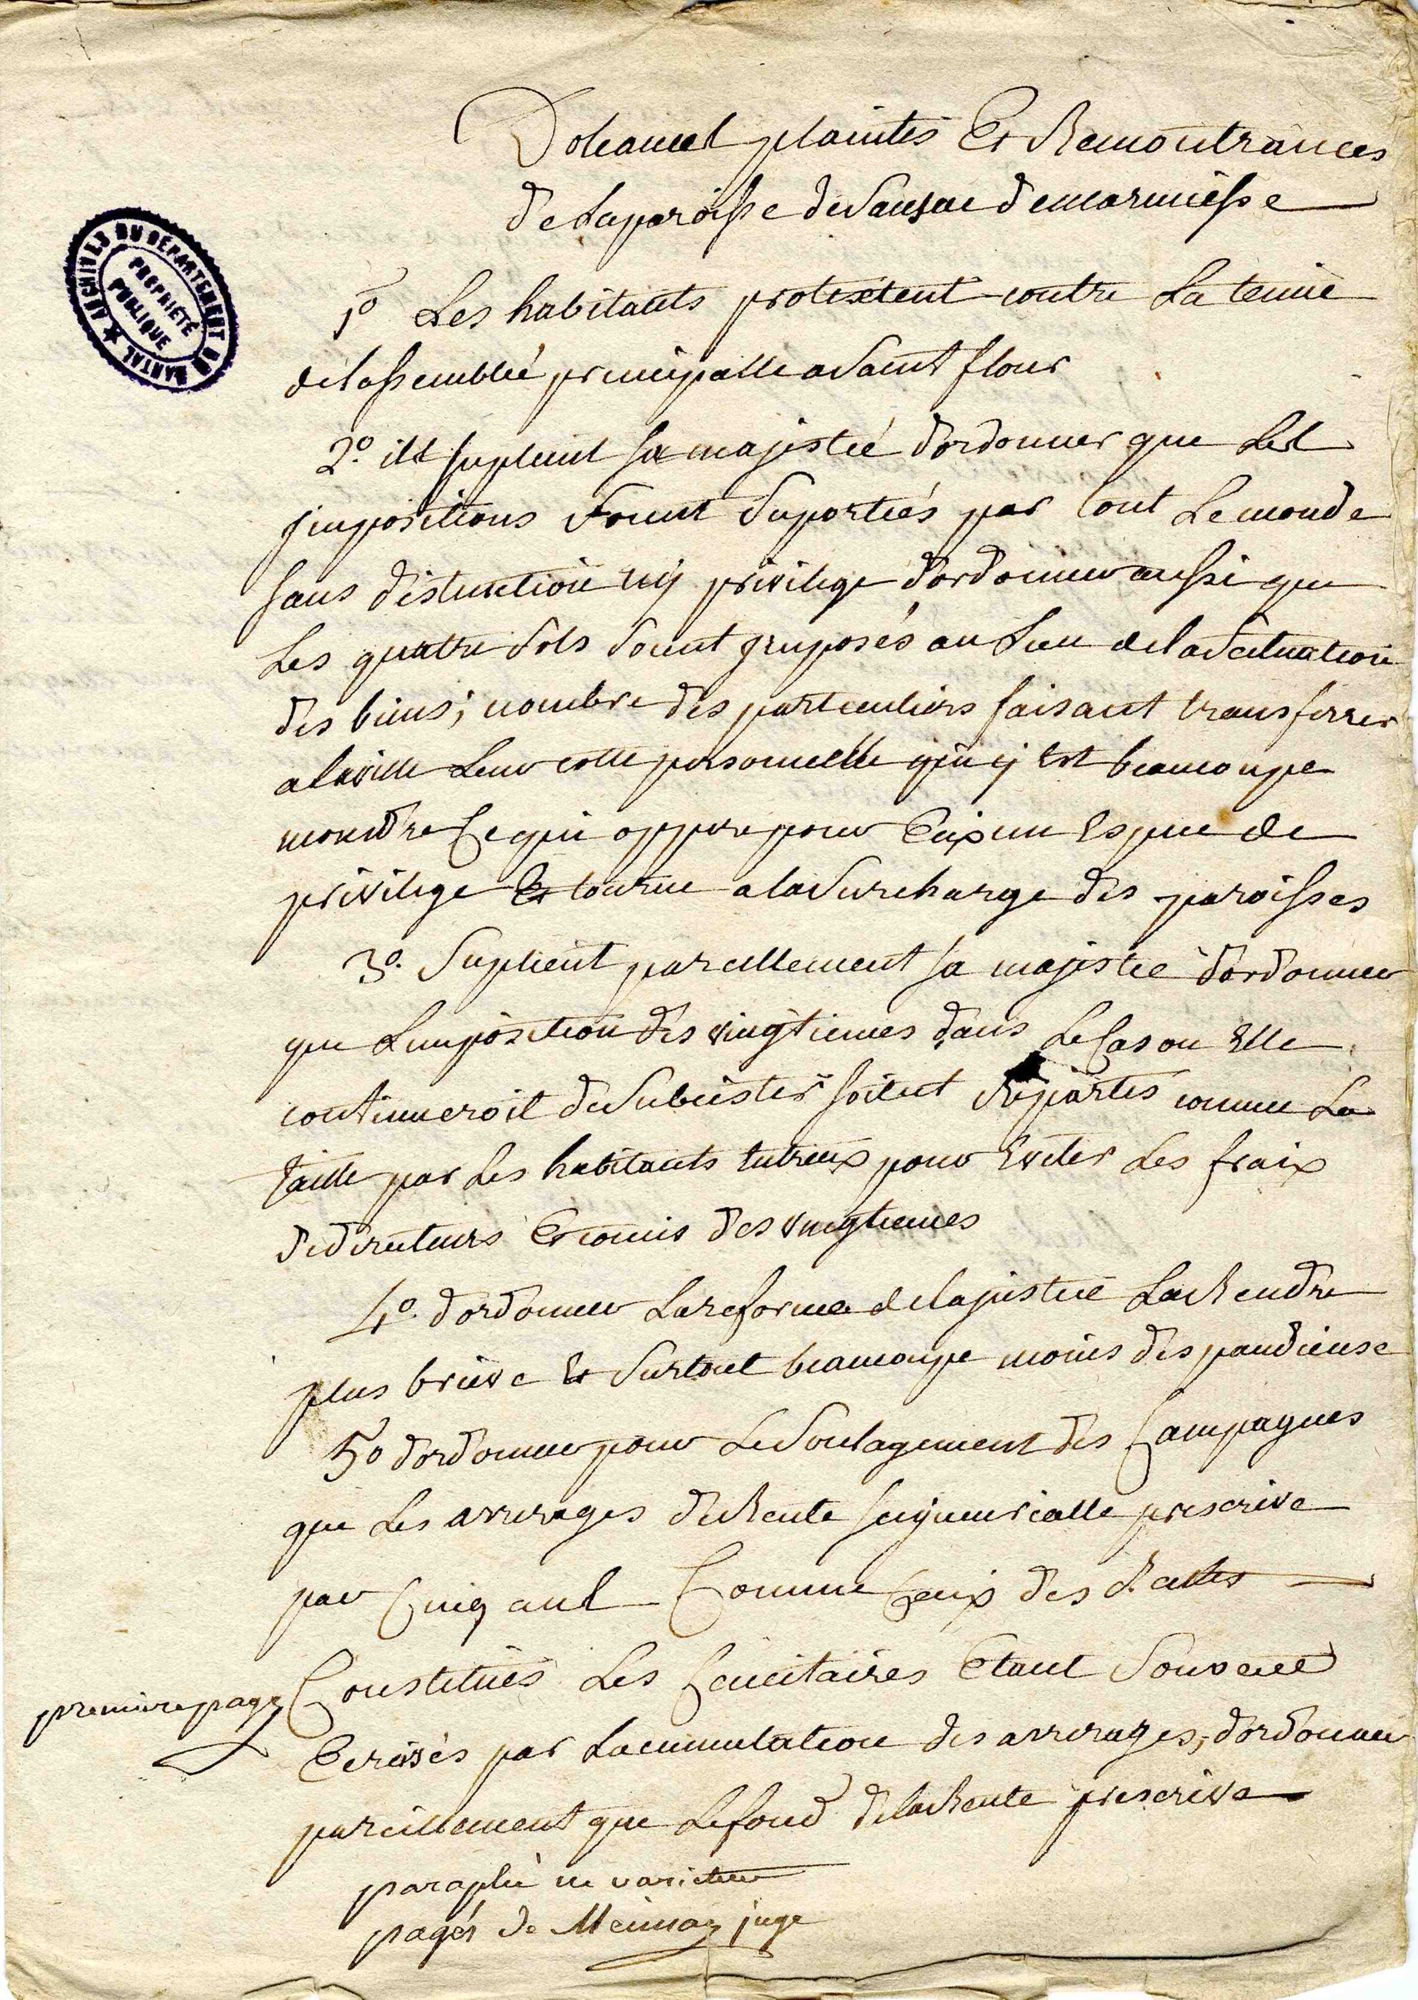 Doleances plaintes Et Remontrances
de la paroisse de Sansac de marmiesse
ARCHIVES DU DÉPARTEMENT DU CANTAL
PROPRIÉTÉ PUBLIQUE
1º Les habitants protestent contre La tenue
de lassemblée principalle a Saint flour
2º ils suplient sa majesté d'ordonner que Les
jmpositions Soient Suportiés par tout Le monde
sans distinction ny privilege d'ordonner aussi que
Les quatre Sols Soient jmposés au Lieu de la Scituation
des biens; nombre des particuliers faisant transferrer
a la ville Leur cotte personnelle qui y Est beaucoupe
moindre Ce qui oppere pour Eux un Espece de
privilege Et tourne a la Surcharge des paroisses
3º. Suplient pareillement sa majesté d'ordonner
que Limposition des vingtiemes dans Le Cas ou Elle
continueroit de Subcister soient reparties comme La
taille par Les habitants Entreux pour Eviter Les fraix
de directeurs Et comis des vingtiemes
4º. d'ordonner La reforme de la justice La Rendre
plus brieve Et Surtout beaucoupe moins dispandieuse
5º d'ordonner pour Le Soulagement des Campagnes
que Les arrerages de Rente seigneurialle prescrive
par Cinq ans Comme Ceux des Rentes
Constitués Les Cencitaires Etant Souvent
Ecrasés par Lacumulation des arrerages, d'ordonner
pareillement que Le fond de la Rente prescrive
premiere page
paraphé ne varietur
pagés de juge